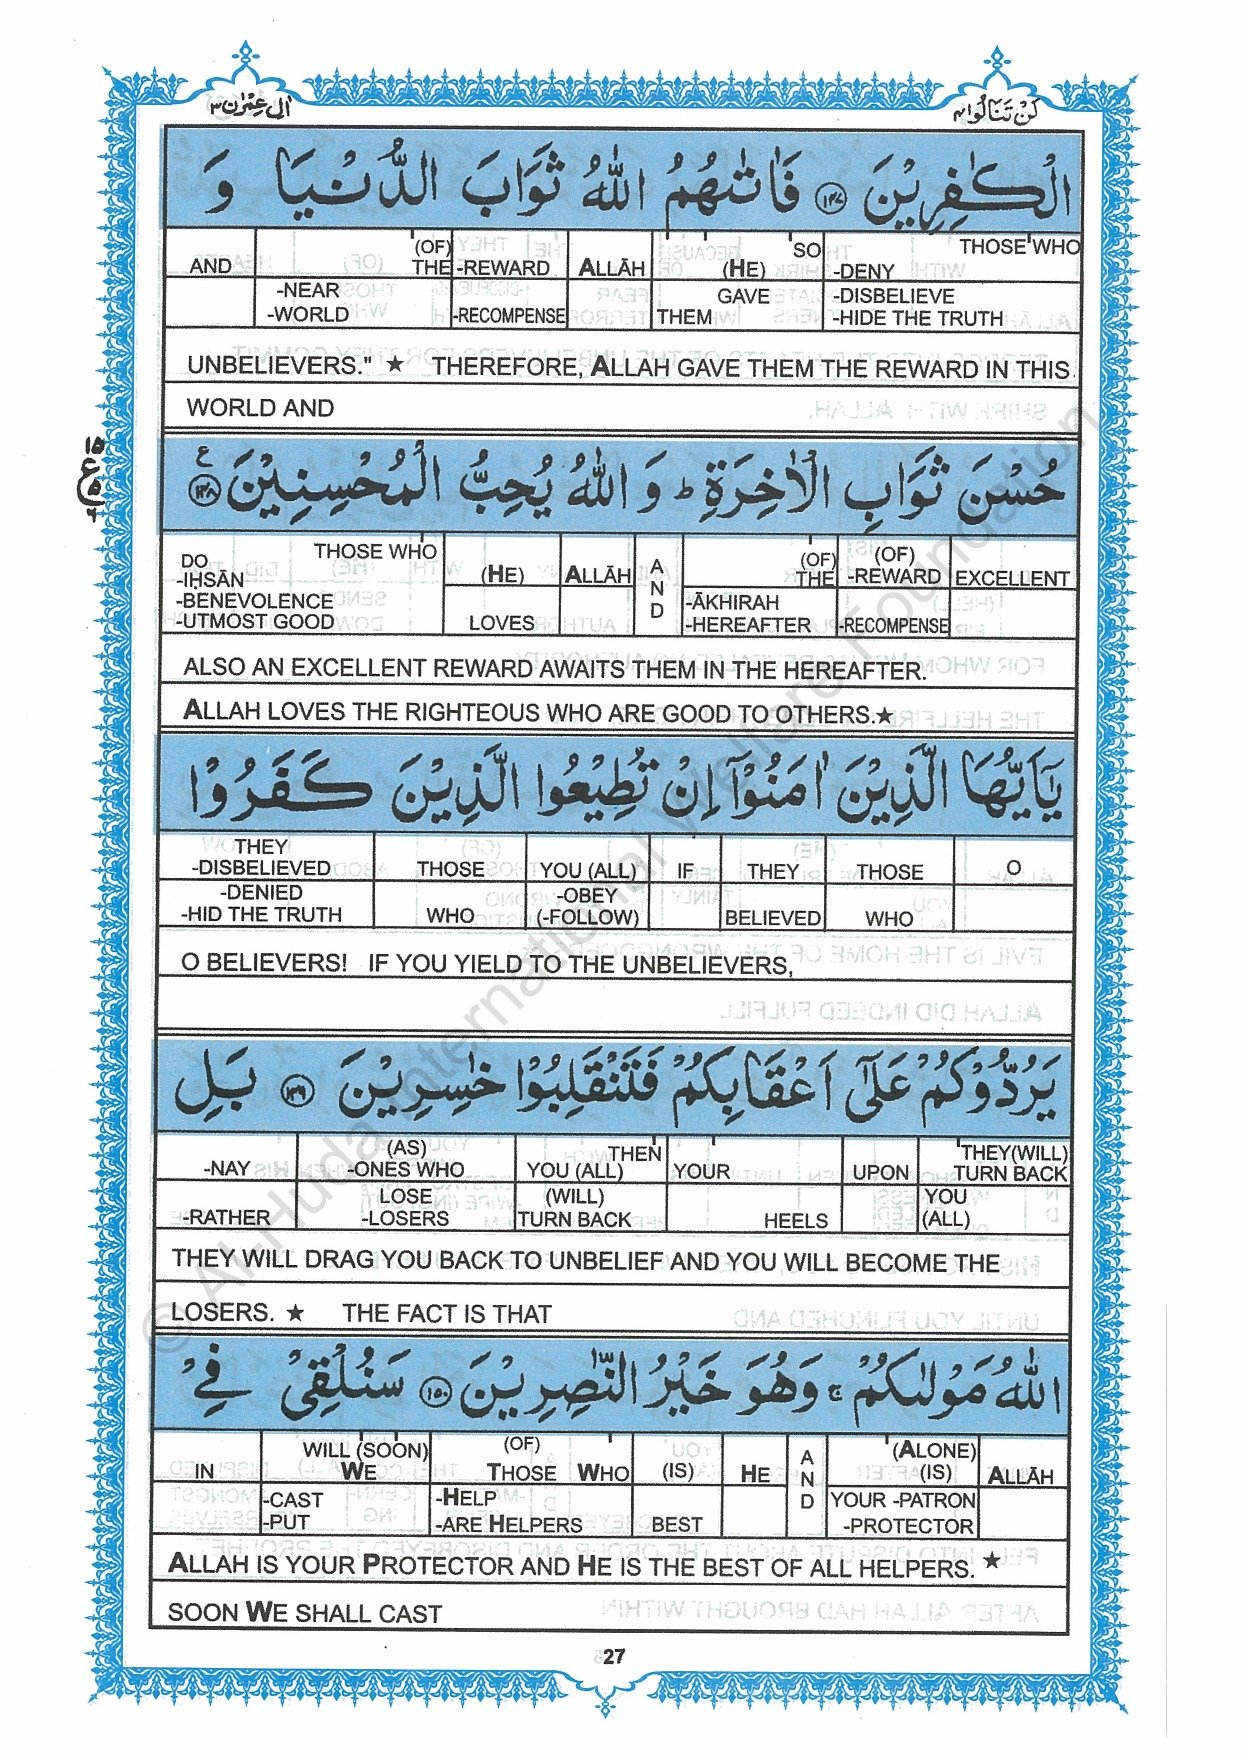 اٰل عمرٰن ۳
لن تنالوا ۴
الْكٰفِرِيْنَ ﴿۱۴۷﴾ فَاٰتٰىهُمُ اللّٰهُ ثَوَابَ الدُّنْيَا وَ
AND (OF) THE -REWARD ALLĀH (HE) SO THOSE WHO -DENY
-NEAR -WORLD -RECOMPENSE GAVE THEM -DISBELIEVE -HIDE THE TRUTH
UNBELIEVERS." ★ THEREFORE, ALLAH GAVE THEM THE REWARD IN THIS
WORLD AND
۱۵
ع
۵
۶
حُسْنَ ثَوَابِ الْاٰخِرَةِ ؕ وَ اللّٰهُ يُحِبُّ الْمُحْسِنِيْنَ ﴿۱۴۸﴾ ع
DO THOSE WHO -IHSĀN (HE) ALLĀH AND (OF) THE (OF) -REWARD EXCELLENT
-BENEVOLENCE -UTMOST GOOD LOVES -ĀKHIRAH -HEREAFTER -RECOMPENSE
ALSO AN EXCELLENT REWARD AWAITS THEM IN THE HEREAFTER.
ALLAH LOVES THE RIGHTEOUS WHO ARE GOOD TO OTHERS.★
يٰۤاَيُّهَا الَّذِيْنَ اٰمَنُوْۤا اِنْ تُطِيْعُوا الَّذِيْنَ كَفَرُوْا
THEY -DISBELIEVED THOSE YOU (ALL) IF THEY THOSE O
-DENIED -HID THE TRUTH WHO -OBEY (-FOLLOW) BELIEVED WHO
O BELIEVERS! IF YOU YIELD TO THE UNBELIEVERS,
يَرُدُّوْكُمْ عَلٰۤى اَعْقَابِكُمْ فَتَنْقَلِبُوْا خٰسِرِيْنَ ﴿۱۴۹﴾ بَلِ
-NAY (AS) -ONES WHO THEN YOU (ALL) YOUR UPON THEY(WILL) TURN BACK
-RATHER LOSE -LOSERS (WILL) TURN BACK HEELS YOU (ALL)
THEY WILL DRAG YOU BACK TO UNBELIEF AND YOU WILL BECOME THE
LOSERS. ★ THE FACT IS THAT
اللّٰهُ مَوْلٰىكُمْ ۚ وَهُوَ خَيْرُ النّٰصِرِيْنَ ﴿۱۵۰﴾ سَنُلْقِيْ فِيْ
IN WILL (SOON) WE (OF) THOSE WHO (IS) HE AND (ALONE) (IS) ALLĀH
-CAST -PUT -HELP -ARE HELPERS BEST YOUR -PATRON -PROTECTOR
ALLAH IS YOUR PROTECTOR AND HE IS THE BEST OF ALL HELPERS. ★
SOON WE SHALL CAST
27
© Al-Huda International Welfare Foundation